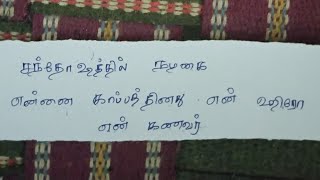 சந்தோஷத்தில் கமகை
என்னை காப்பத்தினது என் ஹீரோ
என் கணவர்